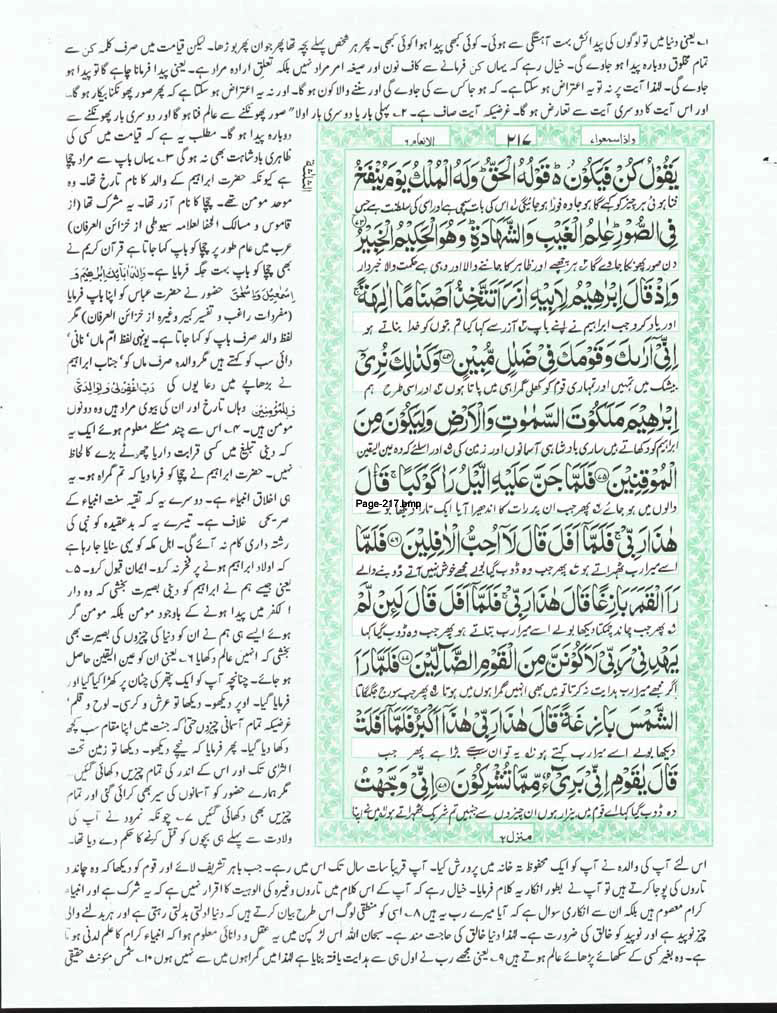 ۱۔ یعنی دنیا میں تو لوگوں کی پیدائش بہت آہستگی سے ہوئی۔ کوئی کبھی پیدا ہوا کوئی کبھی۔ پھر ہر شخص پہلے بچہ تھا پھر جوان پھر بوڑھا۔ لیکن قیامت میں صرف کلمہ کن سے
تمام مخلوق دوبارہ پیدا ہو جاوے گی۔ خیال رہے کہ یہاں کن فرمانے سے کاف نون اور صیغہ امر مراد نہیں بلکہ تعلق ارادہ مراد ہے۔ یعنی پیدا فرمانا چاہے گا تو پیدا ہو
جاوے گی۔ لہٰذا آیت پر نہ تو یہ اعتراض ہو سکتا ہے۔ کہ ہو جا کس سے کی جاوے گی اور سننے والا کون ہو گا۔ اور نہ یہ اعتراض ہو سکتا ہے کہ پھر صور پھونکنا بیکار ہو گا۔
اور اس آیت کا دوسری آیت سے تعارض ہو گا۔ غرضیکہ آیت صاف ہے۔ ۲۔ پہلی بار یا دوسری بار اولا" صور پھونکنے سے عالم فنا ہو گا اور دوسری بار پھونکنے سے
دوبارہ پیدا ہو گا۔ مطلب یہ ہے کہ قیامت میں کسی کی
ظاہری بادشاہت بھی نہ ہو گی ۳۔ یہاں باپ سے مراد چچا
ہے کیونکہ حضرت ابراہیم کے والد کا نام تارخ تھا۔ وہ
موحد مومن تھے۔ چچا کا نام آزر تھا۔ یہ مشرک تھا (از
قاموس و مسالک الحنفا لعلامہ سیوطی از خزائن العرفان)
عرب میں عام طور پر چچا کو باپ کہا جاتا ہے قرآن کریم نے
بھی چچا کو باپ بہت جگہ فرمایا ہے۔ وَاِلٰہَ اٰبَآئِکَ اِبْرٰھِیْمَ وَ
اِسْمٰعِیْلَ وَاِسْحٰقَ حضور نے حضرت عباس کو اپنا باپ فرمایا
(مفردات راغب و تفسیر کبیر وغیرہ از خزائن العرفان) مگر
لفظ والد صرف باپ کو کہا جاتا ہے۔ یونہی لفظ ام ماں' نانی'
دائی سب کو کہتے ہیں مگر والدہ صرف ماں کو' جناب ابراہیم
نے بڑھاپے میں دعا یوں کی رَبِّ اغْفِرْلِیْ وَلِوَالِدَیَّ
وَلِلْمُؤْمِنِیْنَ وہاں تارخ اور ان کی بیوی مراد ہیں وہ دونوں
مومن ہیں۔ ۴۔ اس سے چند مسئلے معلوم ہوئے ایک یہ
کہ دینی تبلیغ میں کسی قرابت دار یا چھوٹے بڑے کا لحاظ
نہیں۔ حضرت ابراہیم نے چچا کو فرما دیا کہ تم گمراہ ہو۔ یہ
ہی اخلاق انبیاء ہے۔ دوسرے یہ کہ تقیہ سنت انبیاء کے
صریحی خلاف ہے۔ تیسرے یہ کہ بدعقیدہ کو نبی کی
رشتہ داری کام نہ آئے گی۔ اہل مکہ کو یہی سنایا جا رہا ہے
کہ اولاد ابراہیم ہونے پر فخر نہ کرو۔ ایمان قبول کرو۔ ۵۔
یعنی جیسے ہم نے ابراہیم کو دینی بصیرت بخشی کہ وہ دار
الکفر میں پیدا ہونے کے باوجود مومن بلکہ مومن گر
ہوئے ایسے ہی ہم نے ان کو دنیا کی چیزوں کی بصیرت بھی
بخشی کہ انہیں عالم دکھایا ۶۔ یعنی ان کو عین الیقین حاصل
ہو جائے۔ چنانچہ آپ کو ایک پتھر کی چٹان پر کھڑا کیا گیا اور
فرمایا گیا۔ اوپر دیکھو۔ دیکھا تو عرش و کرسی۔ لوح و قلم'
غرضیکہ تمام آسمانی چیزیں حتیٰ کہ جنت میں اپنا مقام سب کچھ
دکھا دیا گیا۔ پھر فرمایا کہ نیچے دیکھو۔ دیکھا تو زمین تحت
الثریٰ تک اور اس کے اندر کی تمام چیزیں دکھائی گئیں۔
مگر ہمارے حضور کو آسمانوں کی سیر بھی کرائی گئی اور تمام
چیزیں بھی دکھائی گئیں ۷۔ چونکہ نمرود نے آپ کی
ولادت سے پہلے ہی بچوں کو قتل کرنے کا حکم دے دیا تھا۔
الثلثۃ
واذا سمعوا ۷
۲۱۷
الانعام ۶
یَقُوْلُ کُنْ فَیَکُوْنُ ۬ؕ قَوْلُہُ الْحَقُّ ؕ وَلَہُ الْمُلْکُ یَوْمَ یُنْفَخُ
فِی الصُّوْرِ ؕ عٰلِمُ الْغَیْبِ وَالشَّہَادَۃِ ؕ وَہُوَ الْحَکِیْمُ الْخَبِیْرُ
دن صور پھونکا جاوے گا ہر چھپے اور ظاہر کا جاننے والا اور وہی ہے حکمت والا خبردار
وَاِذْ قَالَ اِبْرٰہِیْمُ لِاَبِیْہِ اٰزَرَ اَتَتَّخِذُ اَصْنَامًا اٰلِہَۃً ۚ
اور یاد کرو جب ابراہیم نے اپنے باپ آزر سے کہا کیا تم بتوں کو خدا بناتے ہو
اِنِّیْۤ اَرٰىکَ وَقَوْمَکَ فِیْ ضَلٰلٍ مُّبِیْنٍ ۝ وَکَذٰلِکَ نُرِیْۤ
بیشک میں تمہیں اور تمہاری قوم کو کھلی گمراہی میں پاتا ہوں اور اسی طرح ہم
اِبْرٰہِیْمَ مَلَکُوْتَ السَّمٰوٰتِ وَالْاَرْضِ وَلِیَکُوْنَ مِنَ
ابراہیم کو دکھاتے ہیں ساری بادشاہی آسمانوں اور زمین کی ۵ اور اسلئے کہ وہ عین الیقین
الْمُوْقِنِیْنَ ۝ فَلَمَّا جَنَّ عَلَیْہِ الَّیْلُ رَاٰ کَوْکَبًا ۚ قَالَ
Page-217.bmp
والوں میں ہو جائے پھر جب ان پر رات کا اندھیرا آیا ایک تارا دیکھا بولے
ہٰذَا رَبِّیْ ۚ فَلَمَّاۤ اَفَلَ قَالَ لَاۤ اُحِبُّ الْاٰفِلِیْنَ ۝ فَلَمَّا
اسے میرا رب ٹھہراتے ہو پھر جب وہ ڈوب گیا بولے مجھے خوش نہیں آتے ڈوبنے والے
رَاَ الْقَمَرَ بَازِغًا قَالَ ہٰذَا رَبِّیْ ۚ فَلَمَّاۤ اَفَلَ قَالَ لَئِنْ لَّمْ
پھر جب چاند چمکتا دیکھا بولے اسے میرا رب بتاتے ہو پھر جب وہ ڈوب گیا کہا
یَہْدِنِیْ رَبِّیْ لَاَکُوْنَنَّ مِنَ الْقَوْمِ الضَّآلِّیْنَ ۝ فَلَمَّا رَاَ
اگر مجھے میرا رب ہدایت نہ کرتا تو میں بھی انہیں گمراہوں میں ہوتا پھر جب سورج جگمگاتا
الشَّمْسَ بَازِغَۃً قَالَ ہٰذَا رَبِّیْ ہٰذَاۤ اَکْبَرُ ۚ فَلَمَّاۤ اَفَلَتْ
دیکھا بولے اسے میرا رب کہتے ہو یہ تو ان سب سے بڑا ہے پھر جب
قَالَ یٰقَوْمِ اِنِّیْ بَرِیْٓءٌ مِّمَّا تُشْرِکُوْنَ ۝ اِنِّیْ وَجَّہْتُ
وہ ڈوب گیا کہا اے قوم میں بیزار ہوں ان چیزوں سے جنہیں تم شریک ٹھہراتے ہو میں نے اپنا
منزل ۲
اس لئے آپ کی والدہ نے آپ کو ایک محفوظ تہ خانہ میں پرورش کیا۔ آپ قریباً سات سال تک اس میں رہے۔ جب باہر تشریف لائے اور قوم کو دیکھا کہ وہ چاند و
تاروں کی پوجا کرتے ہیں تو آپ نے بطور انکار یہ کلام فرمایا۔ خیال رہے کہ آپ کے اس کلام میں تاروں وغیرہ کی الوہیت کا اقرار نہیں ہے کہ یہ شرک ہے اور انبیاء
کرام معصوم ہیں بلکہ ان سے انکاری سوال ہے کہ آیا میرے رب یہ ہیں ۸۔ اسی کو منطقی لوگ اس طرح بیان کرتے ہیں کہ دنیا ادلتی بدلتی رہتی ہے اور ہر بدلنے والی
چیز نوپید ہے اور نوپید کو خالق کی ضرورت ہے۔ لہٰذا دنیا خالق کی حاجت مند ہے۔ سبحان اللہ اس لڑکپن میں یہ عقل و دانائی معلوم ہوا کہ انبیاء کرام کا علم لدنی ہوتا
ہے۔ وہ بغیر کسی کے سکھائے پڑھائے عالم ہوتے ہیں ۹۔ یعنی مجھے رب نے اول ہی سے ہدایت یافتہ بنایا ہے لہٰذا میں گمراہوں میں سے نہیں ہوں ۱۰۔ شمس مؤنث حقیقی